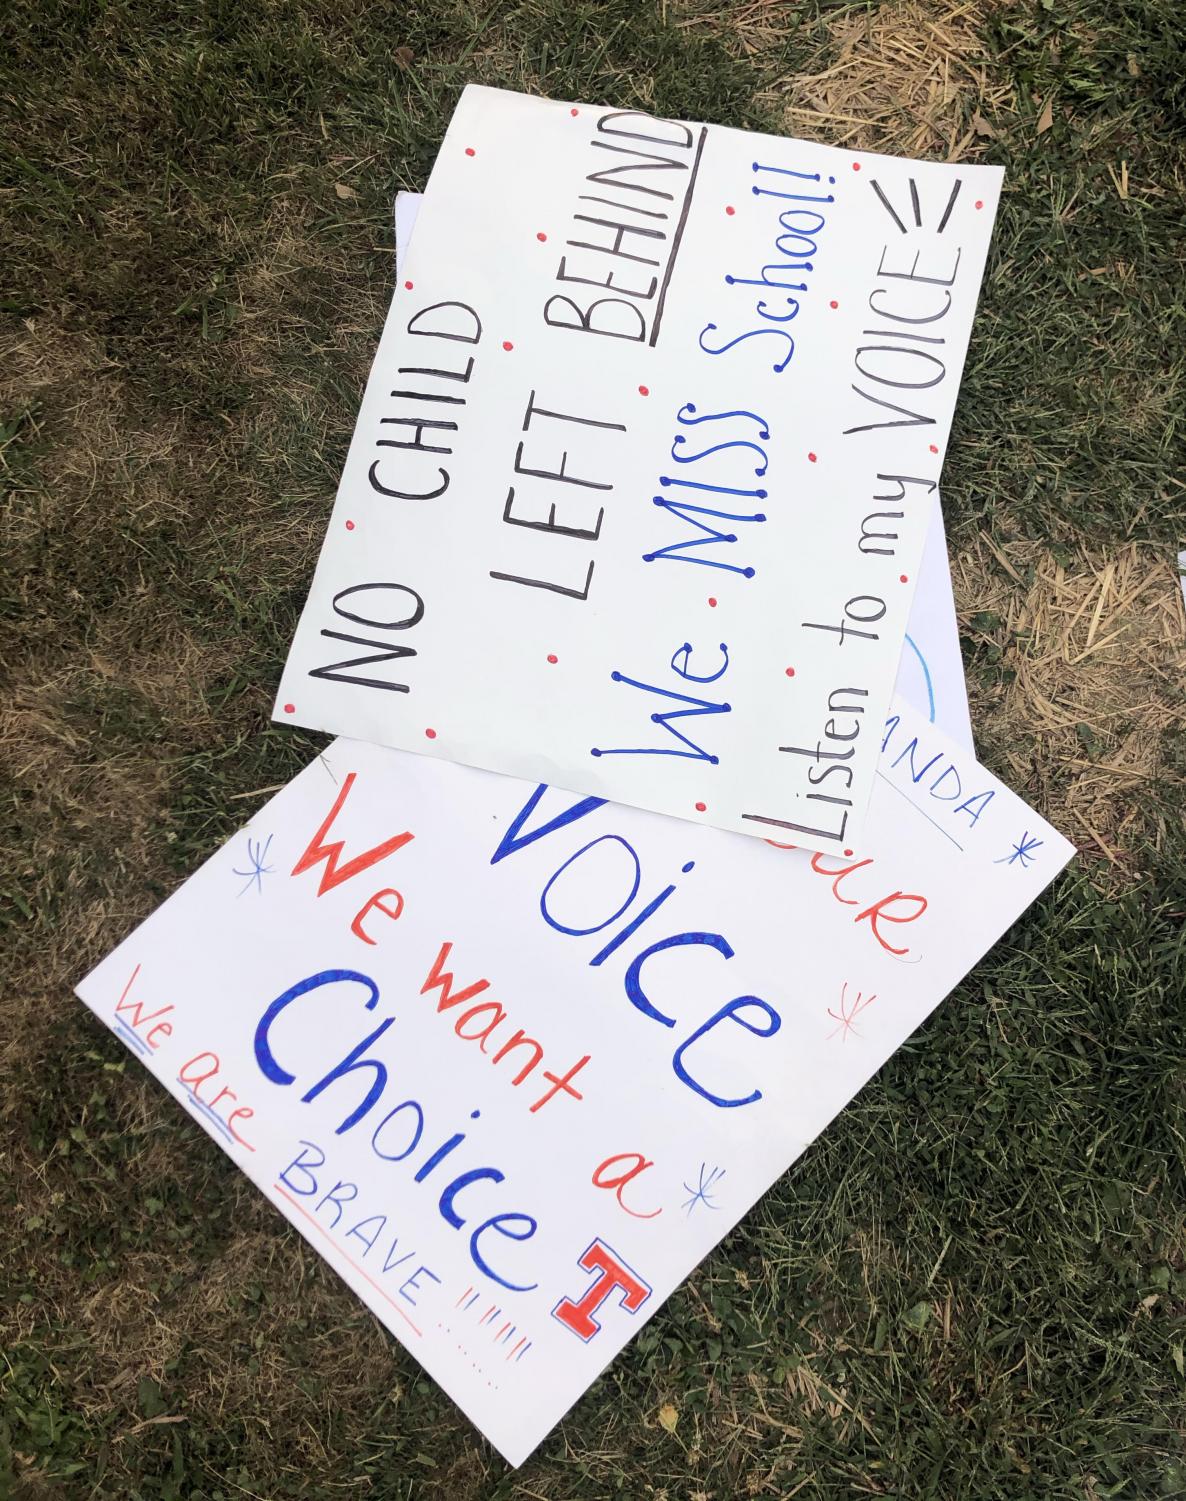 NO CHILD
LEFT BEHIND
We MISS School!
Listen to my VOICE
ANDA
uR
Voice
We want a
Choice
We are BRAVE !!!!!!
T